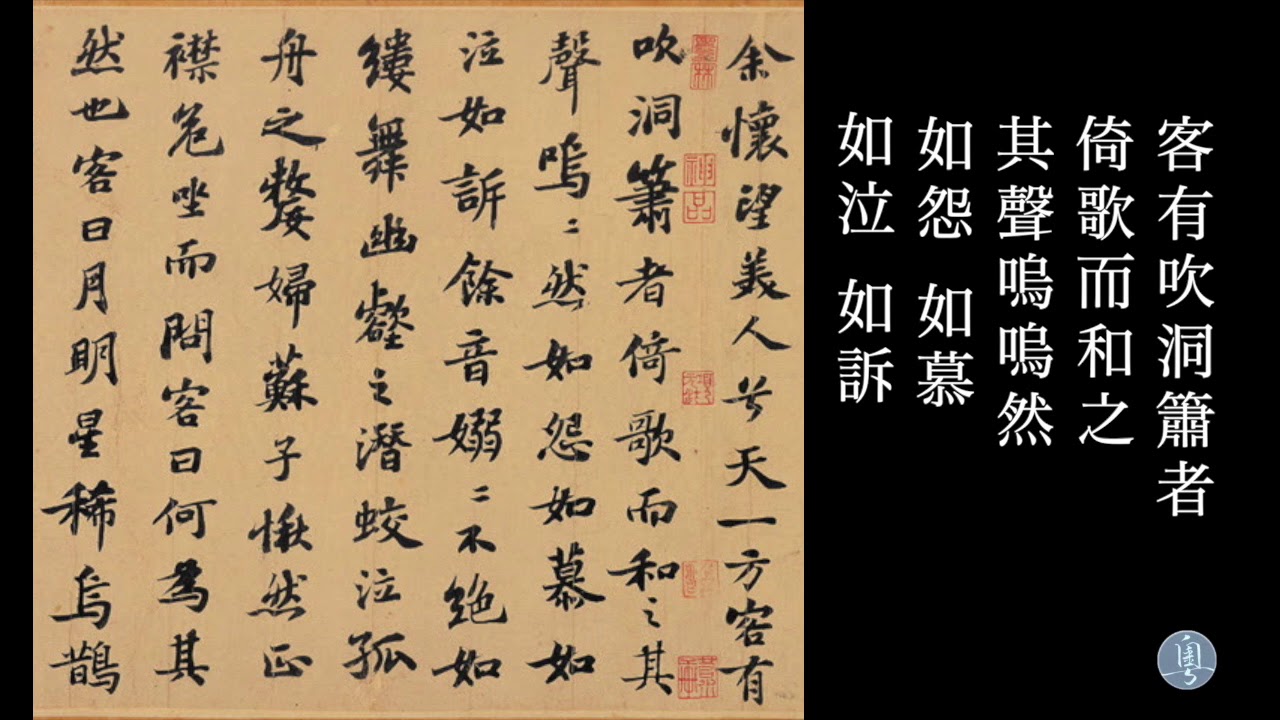 客有吹洞簫者
倚歌而和之
其聲嗚嗚然
如怨 如慕
如泣 如訴
余懷望美人兮天一方客有
吹洞簫者倚歌而和之其
聲嗚〻然如怨如慕如
泣如訴餘音嫋〻不絕如
縷舞幽壑之潛蛟泣孤
舟之嫠婦蘇子愀然正
襟危坐而問客曰何為其
然也客曰月明星稀烏鵲
神品
粵